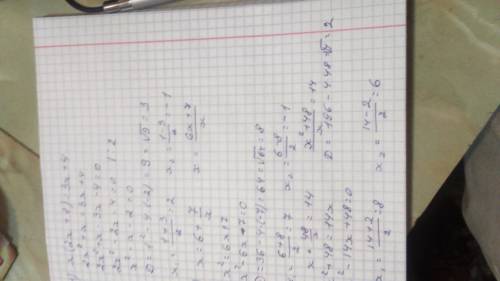 x(2x+8)=3x+4
2x² - x = 3x+4
2x² - x - 3x - 4 = 0
2x² - 2x - 4 = 0 | : 2
x² - x - 2 = 0
D = 1² - 4·(-2) = 9 = √9 = 3
x₁ = (1+3)/2 = 2   x₂ = (1-3)/2 = -1
x = 6 + 7/x   x = (6x+7)/x
x² = 6x+7
x² - 6x - 7 = 0
D = 36 - 4·(-7) = 64 = √64 = 8
x₁ = (6+8)/2 = 7   x₂ = (6-8)/2 = -1
x + 48/x = 14   (x²+48)/x = 14
x² + 48 = 14x
x² - 14x + 48 = 0   D = 196 - 4·48 = √4 = 2
x₁ = (14+2)/2 = 8   x₂ = (14-2)/2 = 6